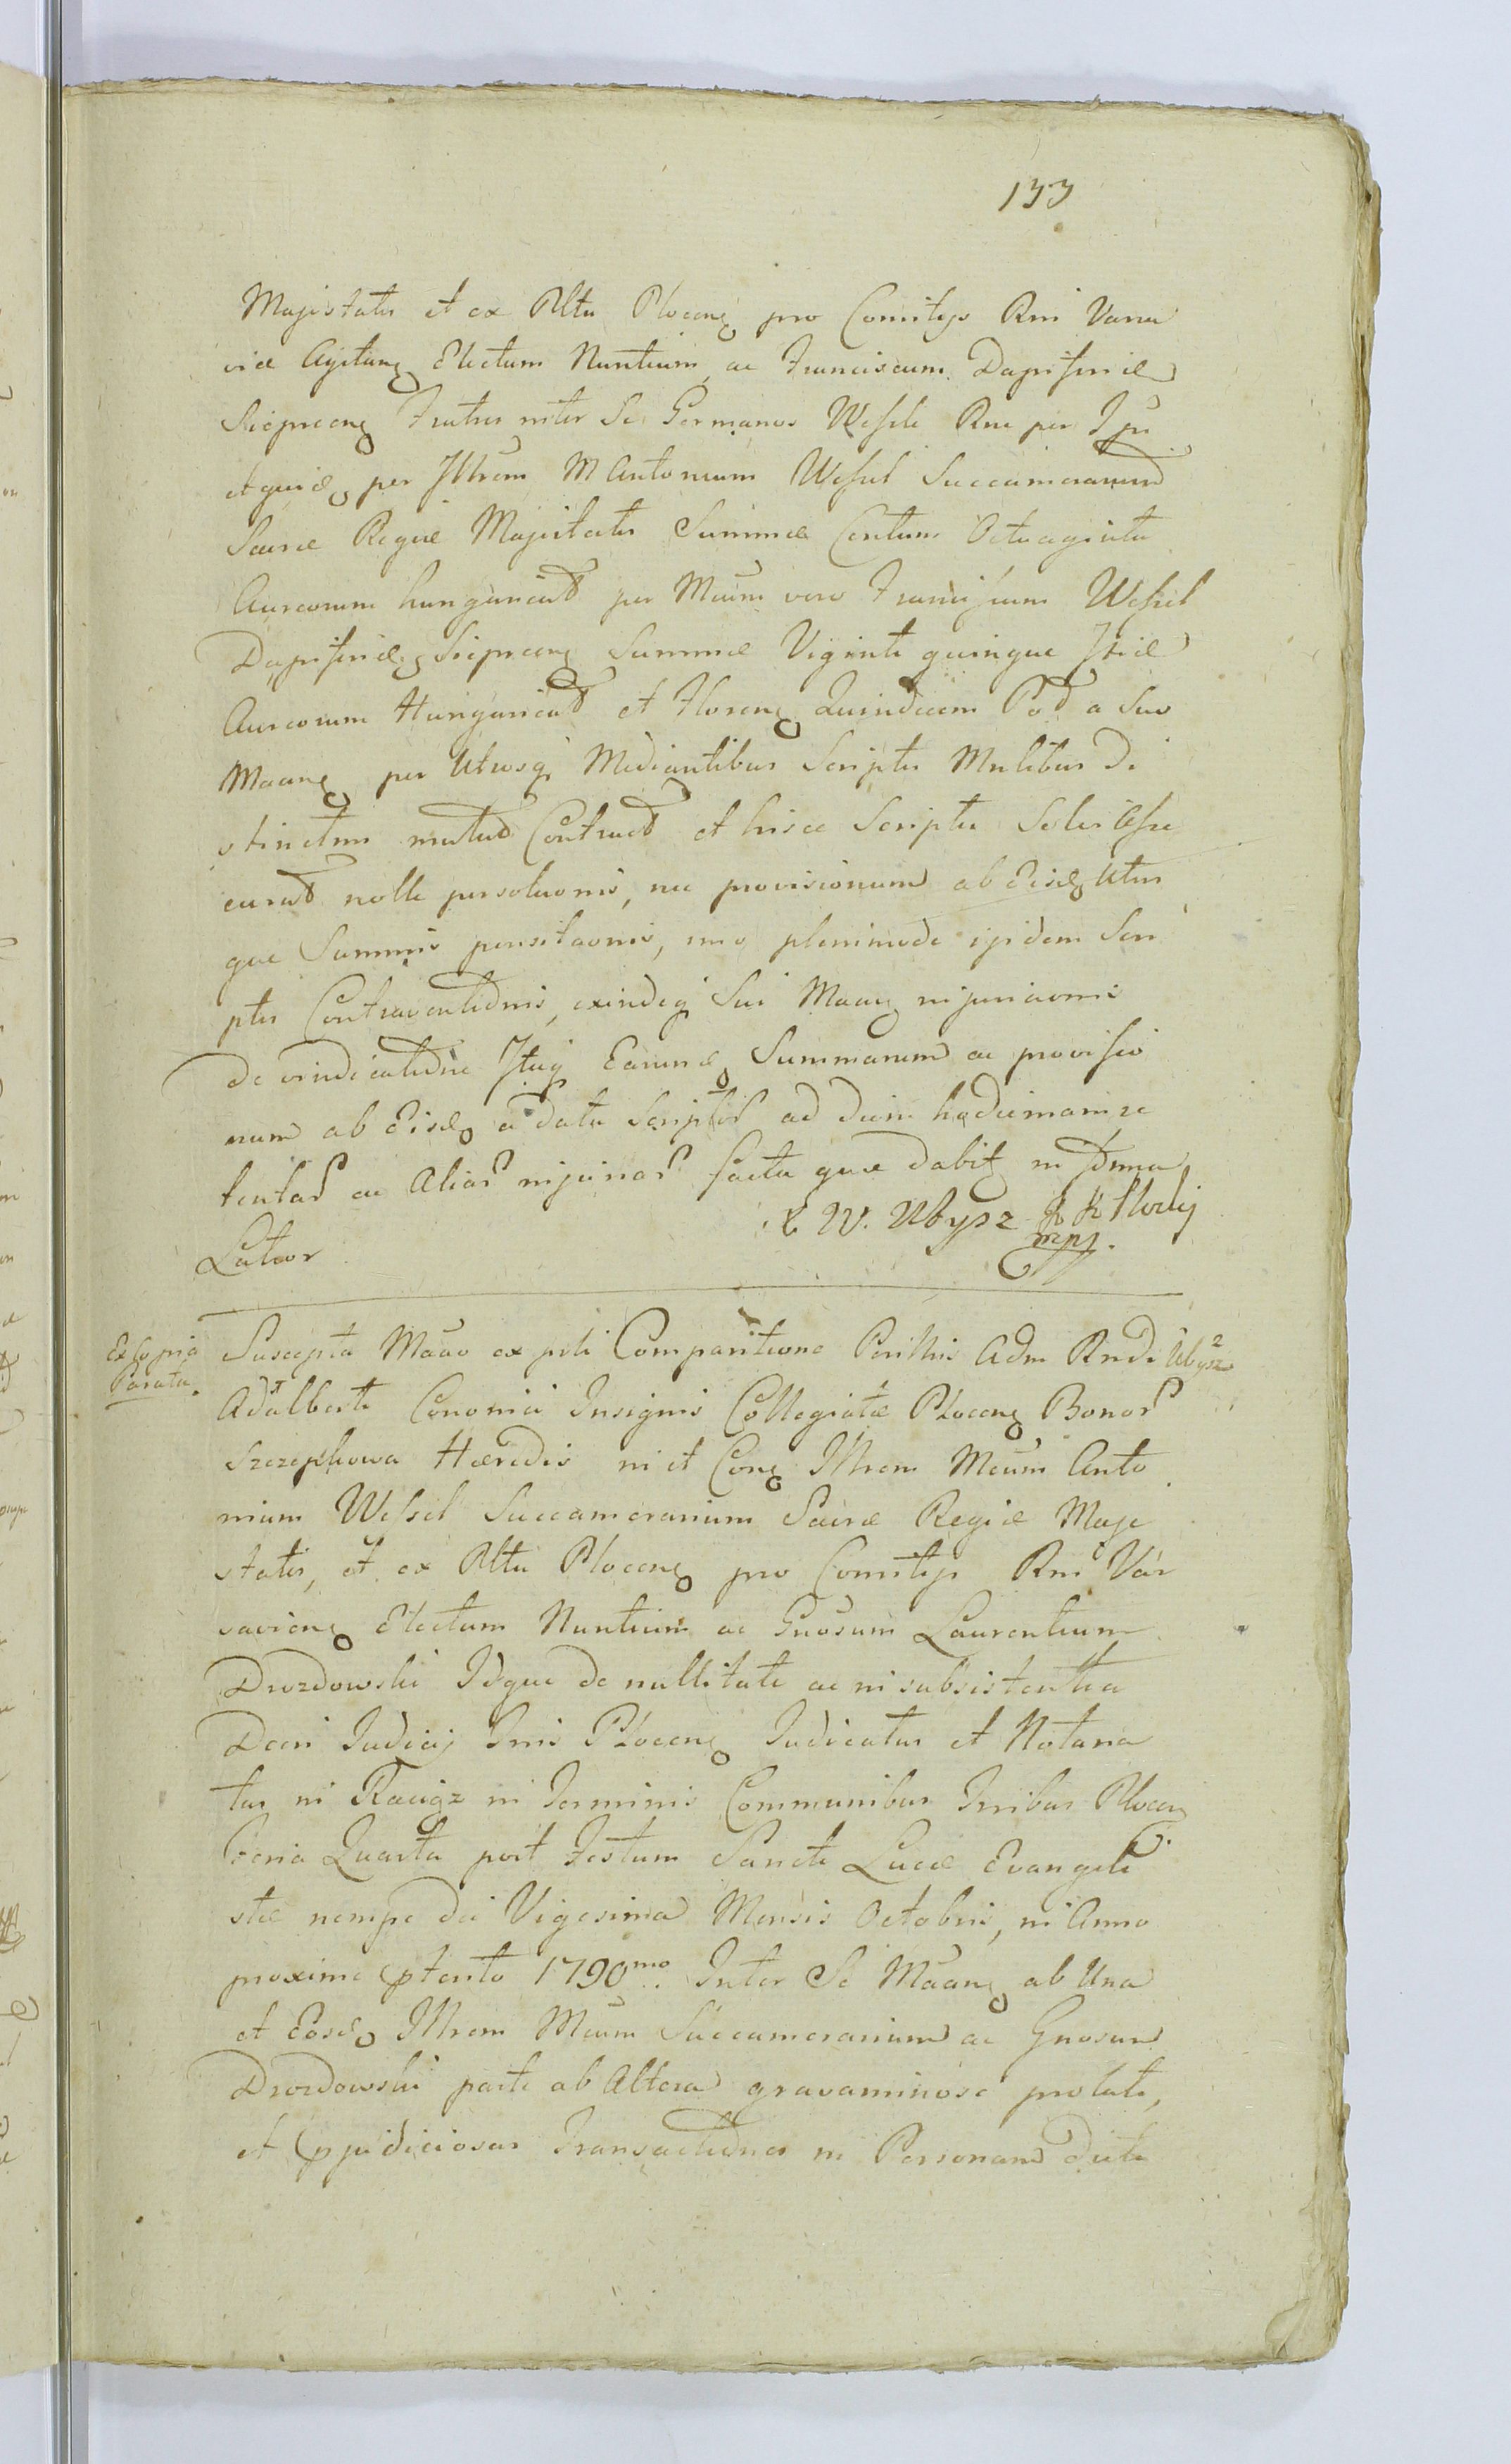 133
Majestatis et ex Pltu Plocen pro Comitijs Rni Varsa
viæ Agitan Electum Nuntium, ac Franciscum Dapiferidæ
Sieprcen Fratres inter Se Germanos Wessele Rne per
per Illrem M Antonium Wessel Succamerarium
Sacræ Regiæ Majestatis Summæ Centum Octuaginta
Aureorum hungaricad per Mcum vero Franciscum Wessel
Dapiferidæ Sieprcen Summæ Viginti quinque Itidæ
Aureorum Hungaricad et Floren Quindecim Pod a Suo
Maane per Utrosq Mediantibus Scriptis Mnlibus Di
stinctim mutuo Contract et hisce Scriptis
nolle persolvonis, nec provisionum ab Eisd Utris
que Summis pensitaonis, imo plenimode ijsdem Scri
ptis Contraventionis, exindeq Sui Maane injuriaonis
De vindicatione Itaq Earund Summarum ac provisio
num ab Eisd a data Script ad diem hodiernam re
tentar ac Aliar injuriar facta quæ dabit in Tmno
Lator
W. Ubysz
mpp.
Ex Copia
Parata.
Suscepta Maao ex pti Comparitione Perillris Adm Rndi Ubysz
Adalberti Cononici Insignis Collegiatæ Plocen Bonor
Szczepkowa Hæredis in et Con Illrem Mcum Anto
nium Wessel Succamerarium Sacræ Regiæ Maje
statis, et ex Pltu Plocen pro Comitijs Rni Var
savien Electum Nuntium ac Gnosum Laurentium
Drozdowski Idque de nullitate ac in subsistentia
Dcri Judicij Tris Plocen Judicatus et Notaria
tus in Raciąz in Terminis Communibus Trribus Plocen
Feria Quarta post Festum Sancti Lucæ Evangeli
stæ nempe die Vigesima Mensis Octobris, in Anno
proxime pterito 1790mo Inter Se Maane ab Una
et Eosd Illrem Mcum Succamerarium ac Gnosum
Drozdowski parte ab Altera gravaminose prolati,
et pjudiciosas Transactiones in Personam dicti